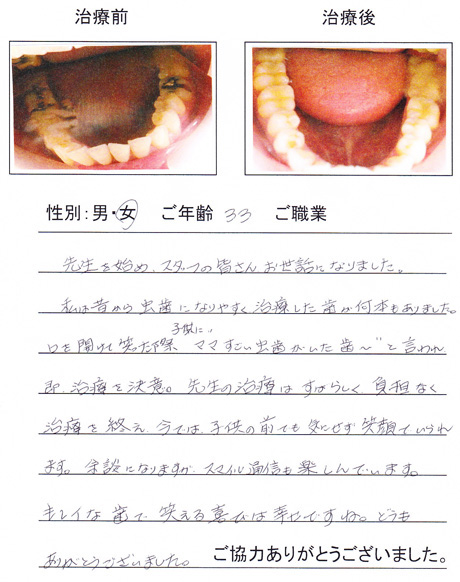 治療前 治療後
性別：男・女 ご年齢 33 ご職業
先生を始め、スタッフの皆さんお世話になりました。
私は昔から虫歯になりやすく治療した歯が何本もありました。
口を開けて笑った際 子供に“ママすごい虫歯がいた歯〜”と言われ
即、治療を決意。先生の治療はすばらしく、負担なく
治療を終え、今では、子供の前でも気にせず笑顔でいられ
ます。余談になりますが、スマイル通信も楽しんでいます。
キレイな歯で、笑える喜びは幸せですね。どうも
ありがとうございました。 ご協力ありがとうございました。